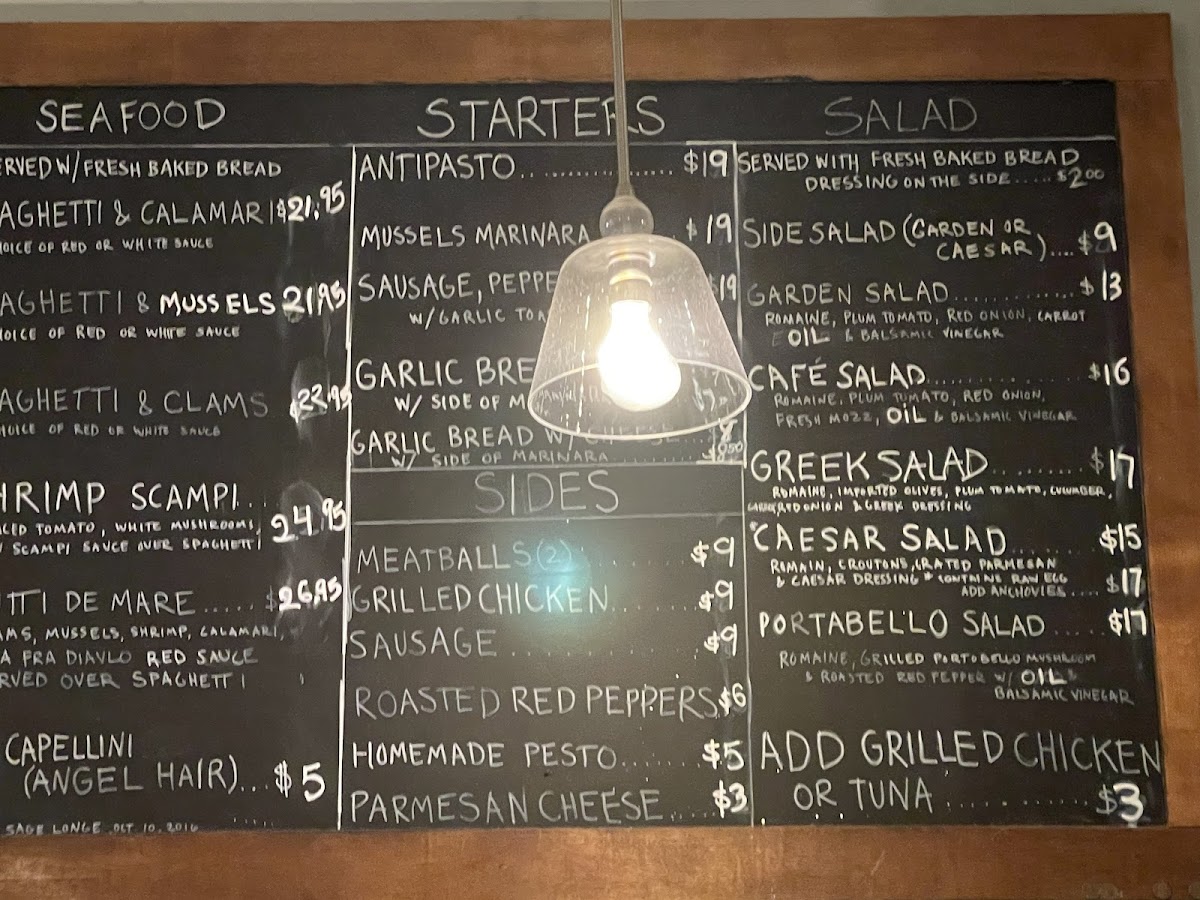 SEAFOOD
ERVED W/ FRESH BAKED BREAD
AGHETTI & CALAMARI $21.95
OICE OF RED OR WHITE SAUCE
AGHETTI & MUSSELS 21.95
OICE OF RED OR WHITE SAUCE
AGHETTI & CLAMS $23.95
HOICE OF RED OR WHITE SAUCE
HRIMP SCAMPI.. 24.95
CED TOMATO, WHITE MUSHROOMS,
SCAMPI SAUCE OVER SPAGHETTI
TTI DE MARE..... $26.95
AMS, MUSSELS, SHRIMP, CALAMARI,
A FRA DIAVLO RED SAUCE
RVED OVER SPAGHETTI
CAPELLINI
(ANGEL HAIR)... $5
SAGE LONGE OCT 10, 2016
STARTERS
ANTIPASTO................ $19
MUSSELS MARINARA $19
SAUSAGE, PEPPE $19
W/GARLIC TOA
GARLIC BRE
W/ SIDE OF M
GARLIC BREAD W/ CHEESE...
W/ SIDE OF MARINARA
SIDES
MEATBALLS (2)........... $9
GRILLED CHICKEN....... $9
SAUSAGE................ $9
ROASTED RED PEPPERS $6
HOMEMADE PESTO...... $5
PARMESAN CHEESE.... $3
SALAD
SERVED WITH FRESH BAKED BREAD
DRESSING ON THE SIDE..... $2.00
SIDE SALAD (GARDEN OR
CAESAR).... $9
GARDEN SALAD............. $13
ROMAINE, PLUM TOMATO, RED ONION, CARROT
OIL & BALSAMIC VINEGAR
CAFÉ SALAD............... $16
ROMAINE, PLUM TOMATO, RED ONION,
FRESH MOZZ, OIL & BALSAMIC VINEGAR
GREEK SALAD......... $17
ROMAINE, IMPORTED OLIVES, PLUM TOMATO, CUCUMBER,
RED ONION & GREEK DRESSING
*CAESAR SALAD....... $15
ROMAIN, CROUTONS, GRATED PARMESAN
& CAESAR DRESSING * CONTAINE RAW EGG
ADD ANCHOVIES.... $17
PORTABELLO SALAD..... $17
ROMAINE, GRILLED PORTOBELLO MUSHROOM
& ROASTED RED PEPPER W/ OIL &
BALSAMIC VINEGAR
ADD GRILLED CHICKEN
OR TUNA............ $3